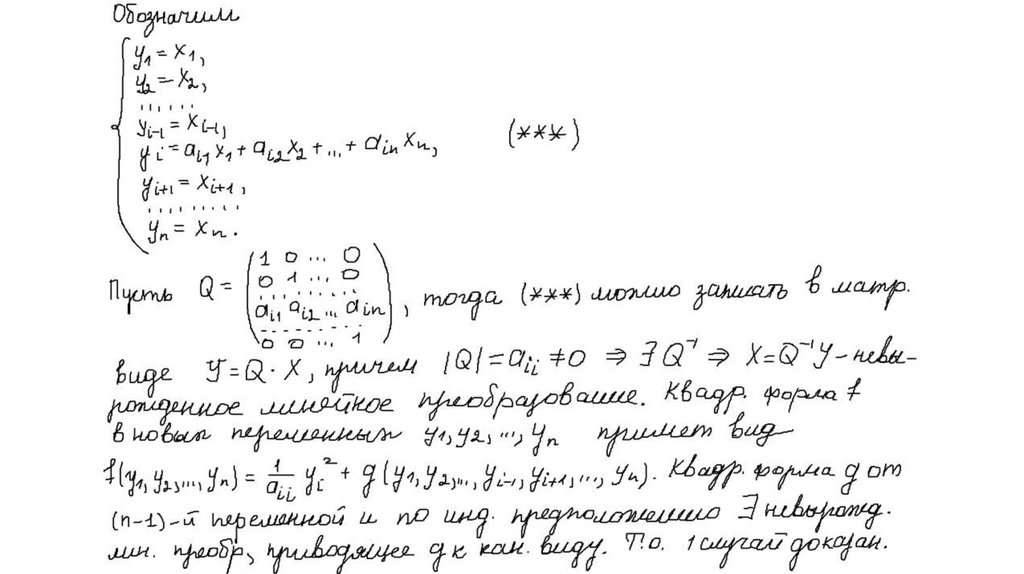 Обозначим
y₁ = x₁,
y₂ = x₂,
. . . . . .
yᵢ₋₁ = xᵢ₋₁,
yᵢ = aᵢ₁x₁ + aᵢ₂x₂ + ... + aᵢₙxₙ, (***)
yᵢ₊₁ = xᵢ₊₁,
. . . . . . . . .
yₙ = xₙ.
1 0 ... 0
0 1 ... 0
. . . . . . . . .
Пусть Q = aᵢ₁ aᵢ₂ ... aᵢₙ , тогда (***) можно записать в матр.
- - - - - - - - -
0 0 ... 1
виде Y = Q · X, причем |Q| = aᵢᵢ ≠ 0 ⇒ ∃ Q⁻¹ ⇒ X = Q⁻¹Y – невы-
рожденное линейное преобразование. Квадр. форма f
в новых переменных y₁, y₂, ..., yₙ примет вид
f(y₁, y₂, ..., yₙ) = 1/aᵢᵢ yᵢ² + g(y₁, y₂, ..., yᵢ₋₁, yᵢ₊₁, ..., yₙ). Квадр. форма g от
(n-1)-й переменной и по инд. предположению ∃ невырожд.
лин. преобр, приводящее g к кан. виду. Т.о. 1 случай доказан.